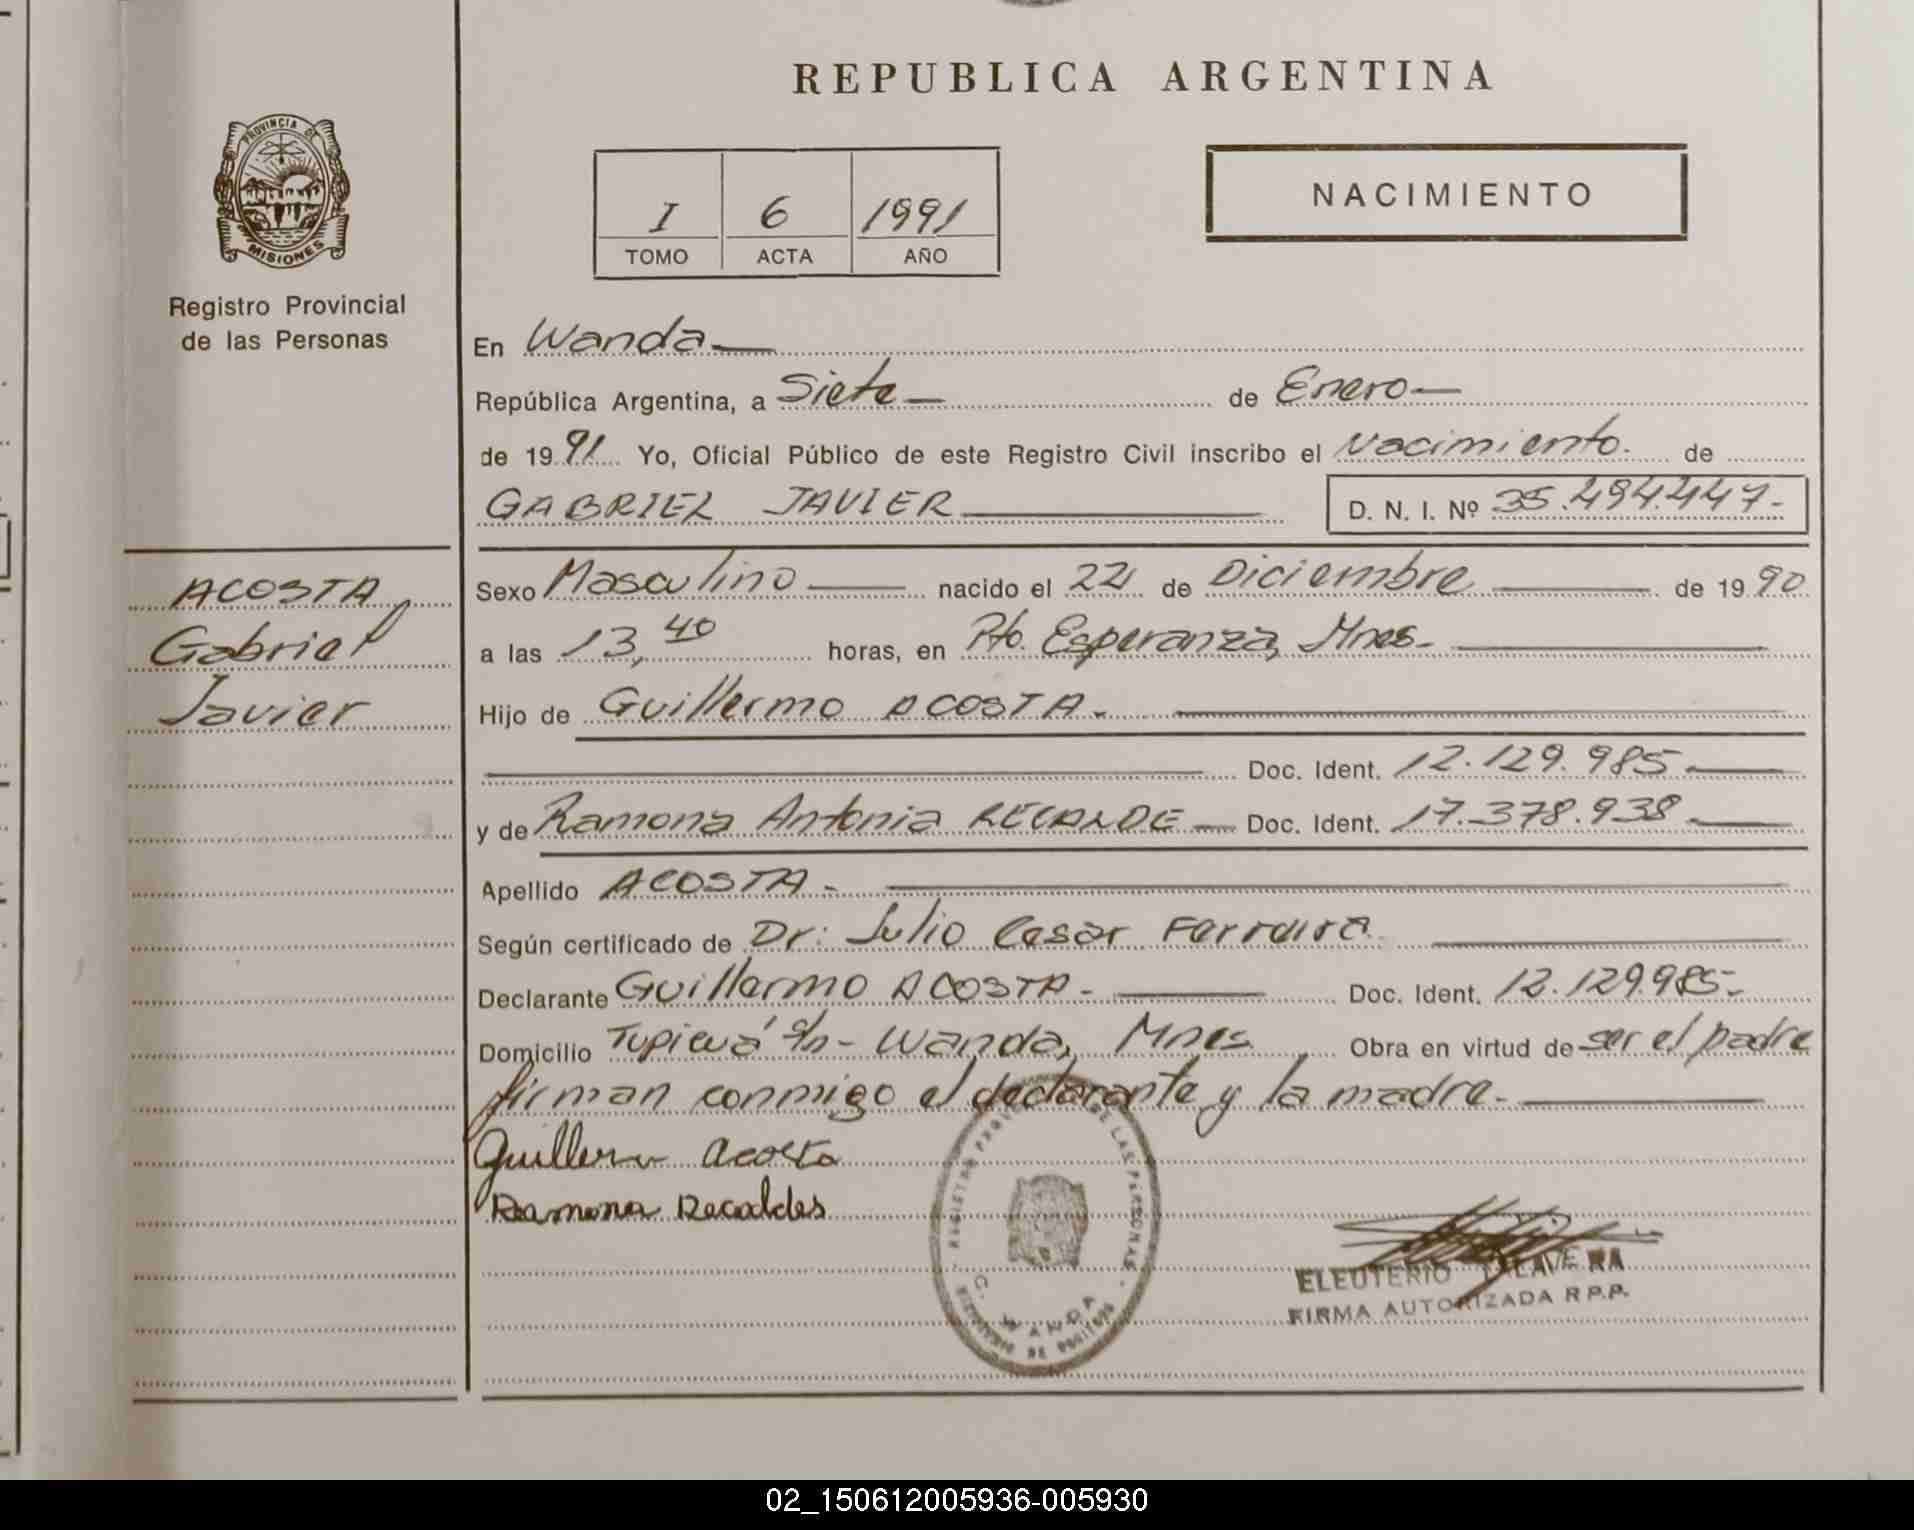 REPUBLICA ARGENTINA
PROVINCIA DE
MISIONES
Registro Provincial
de las Personas
I 6 1991
TOMO ACTA AÑO
NACIMIENTO
En Wanda
República Argentina, a Siete de Enero
de 1991 Yo, Oficial Público de este Registro Civil inscribo el Nacimiento. de
GABRIEL JAVIER D. N. I. Nº 35.494.447.-
ACOSTA
Gabriel
Javier
Sexo Masculino nacido el 22 de Diciembre de 1990
a las 13,40 horas, en Pto. Esperanza, Mnes.
Hijo de Guillermo ACOSTA.
Doc. Ident. 12.129.985
y de Ramona Antonia RECALDE Doc. Ident. 17.378.938
Apellido ACOSTA.
Según certificado de Dr: Julio Cesar Ferreira
Declarante Guillermo ACOSTA- Doc. Ident. 12.129.985-
Domicilio s/n- Wanda, Mnes. Obra en virtud de ser el padre
firman conmigo el declarante y la madre.
Guillermo Acosta
Ramona Recaldes
REGISTRO PROVINCIAL DE LAS PERSONAS
WANDA
ELEUTERIO TALAVERA
FIRMA AUTORIZADA R.P.P.
02_150612005936-005930